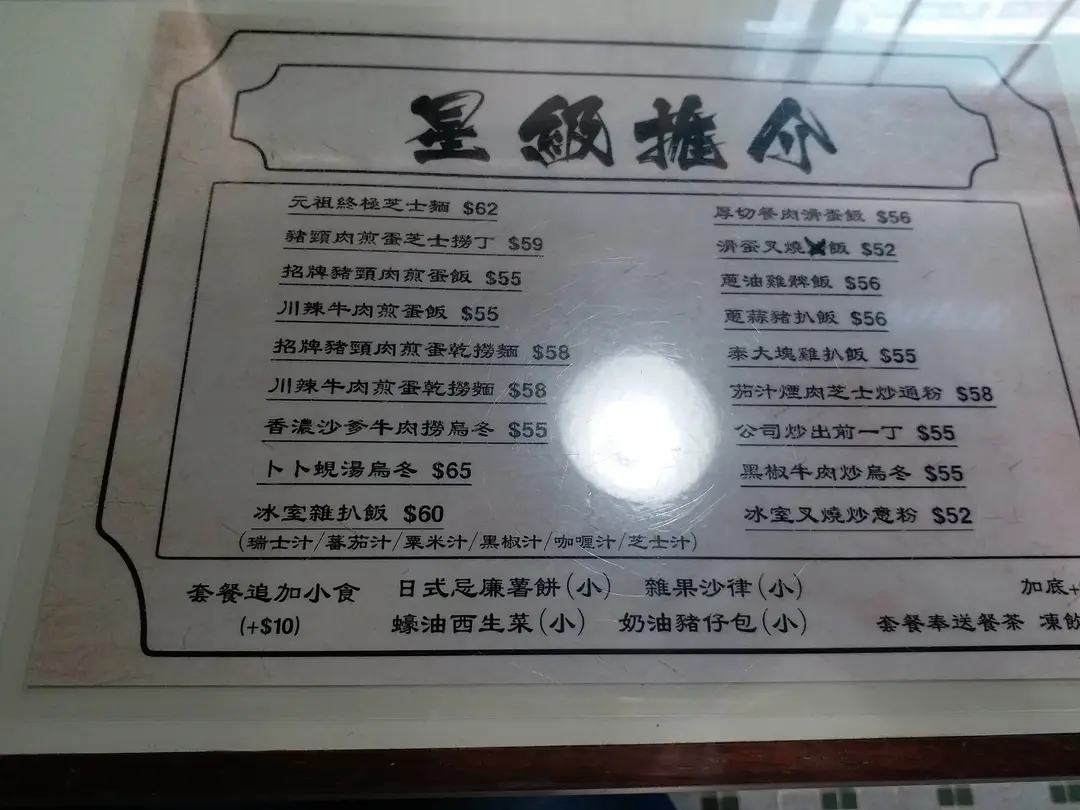 星級推介
元祖終極芝士麵 $62
豬頸肉煎蛋芝士撈丁 $59
招牌豬頸肉煎蛋飯 $55
川辣牛肉煎蛋飯 $55
招牌豬頸肉煎蛋乾撈麵 $58
川辣牛肉煎蛋乾撈麵 $58
香濃沙爹牛肉撈烏冬 $55
卜卜蜆湯烏冬 $65
冰室雜扒飯 $60
(瑞士汁/蕃茄汁/粟米汁/黑椒汁/咖喱汁/芝士汁)
厚切餐肉滑蛋飯 $56
滑蛋叉燒飯 $52
蔥油雞髀飯 $56
蔥蒜豬扒飯 $56
泰大塊雞扒飯 $55
茄汁煙肉芝士炒通粉 $58
公司炒出前一丁 $55
黑椒牛肉炒烏冬 $55
冰室叉燒炒意粉 $52
套餐追加小食 日式忌廉薯餅(小) 雜果沙律(小) 加底+
(+$10) 蠔油西生菜(小) 奶油豬仔包(小) 套餐奉送餐茶 凍飲